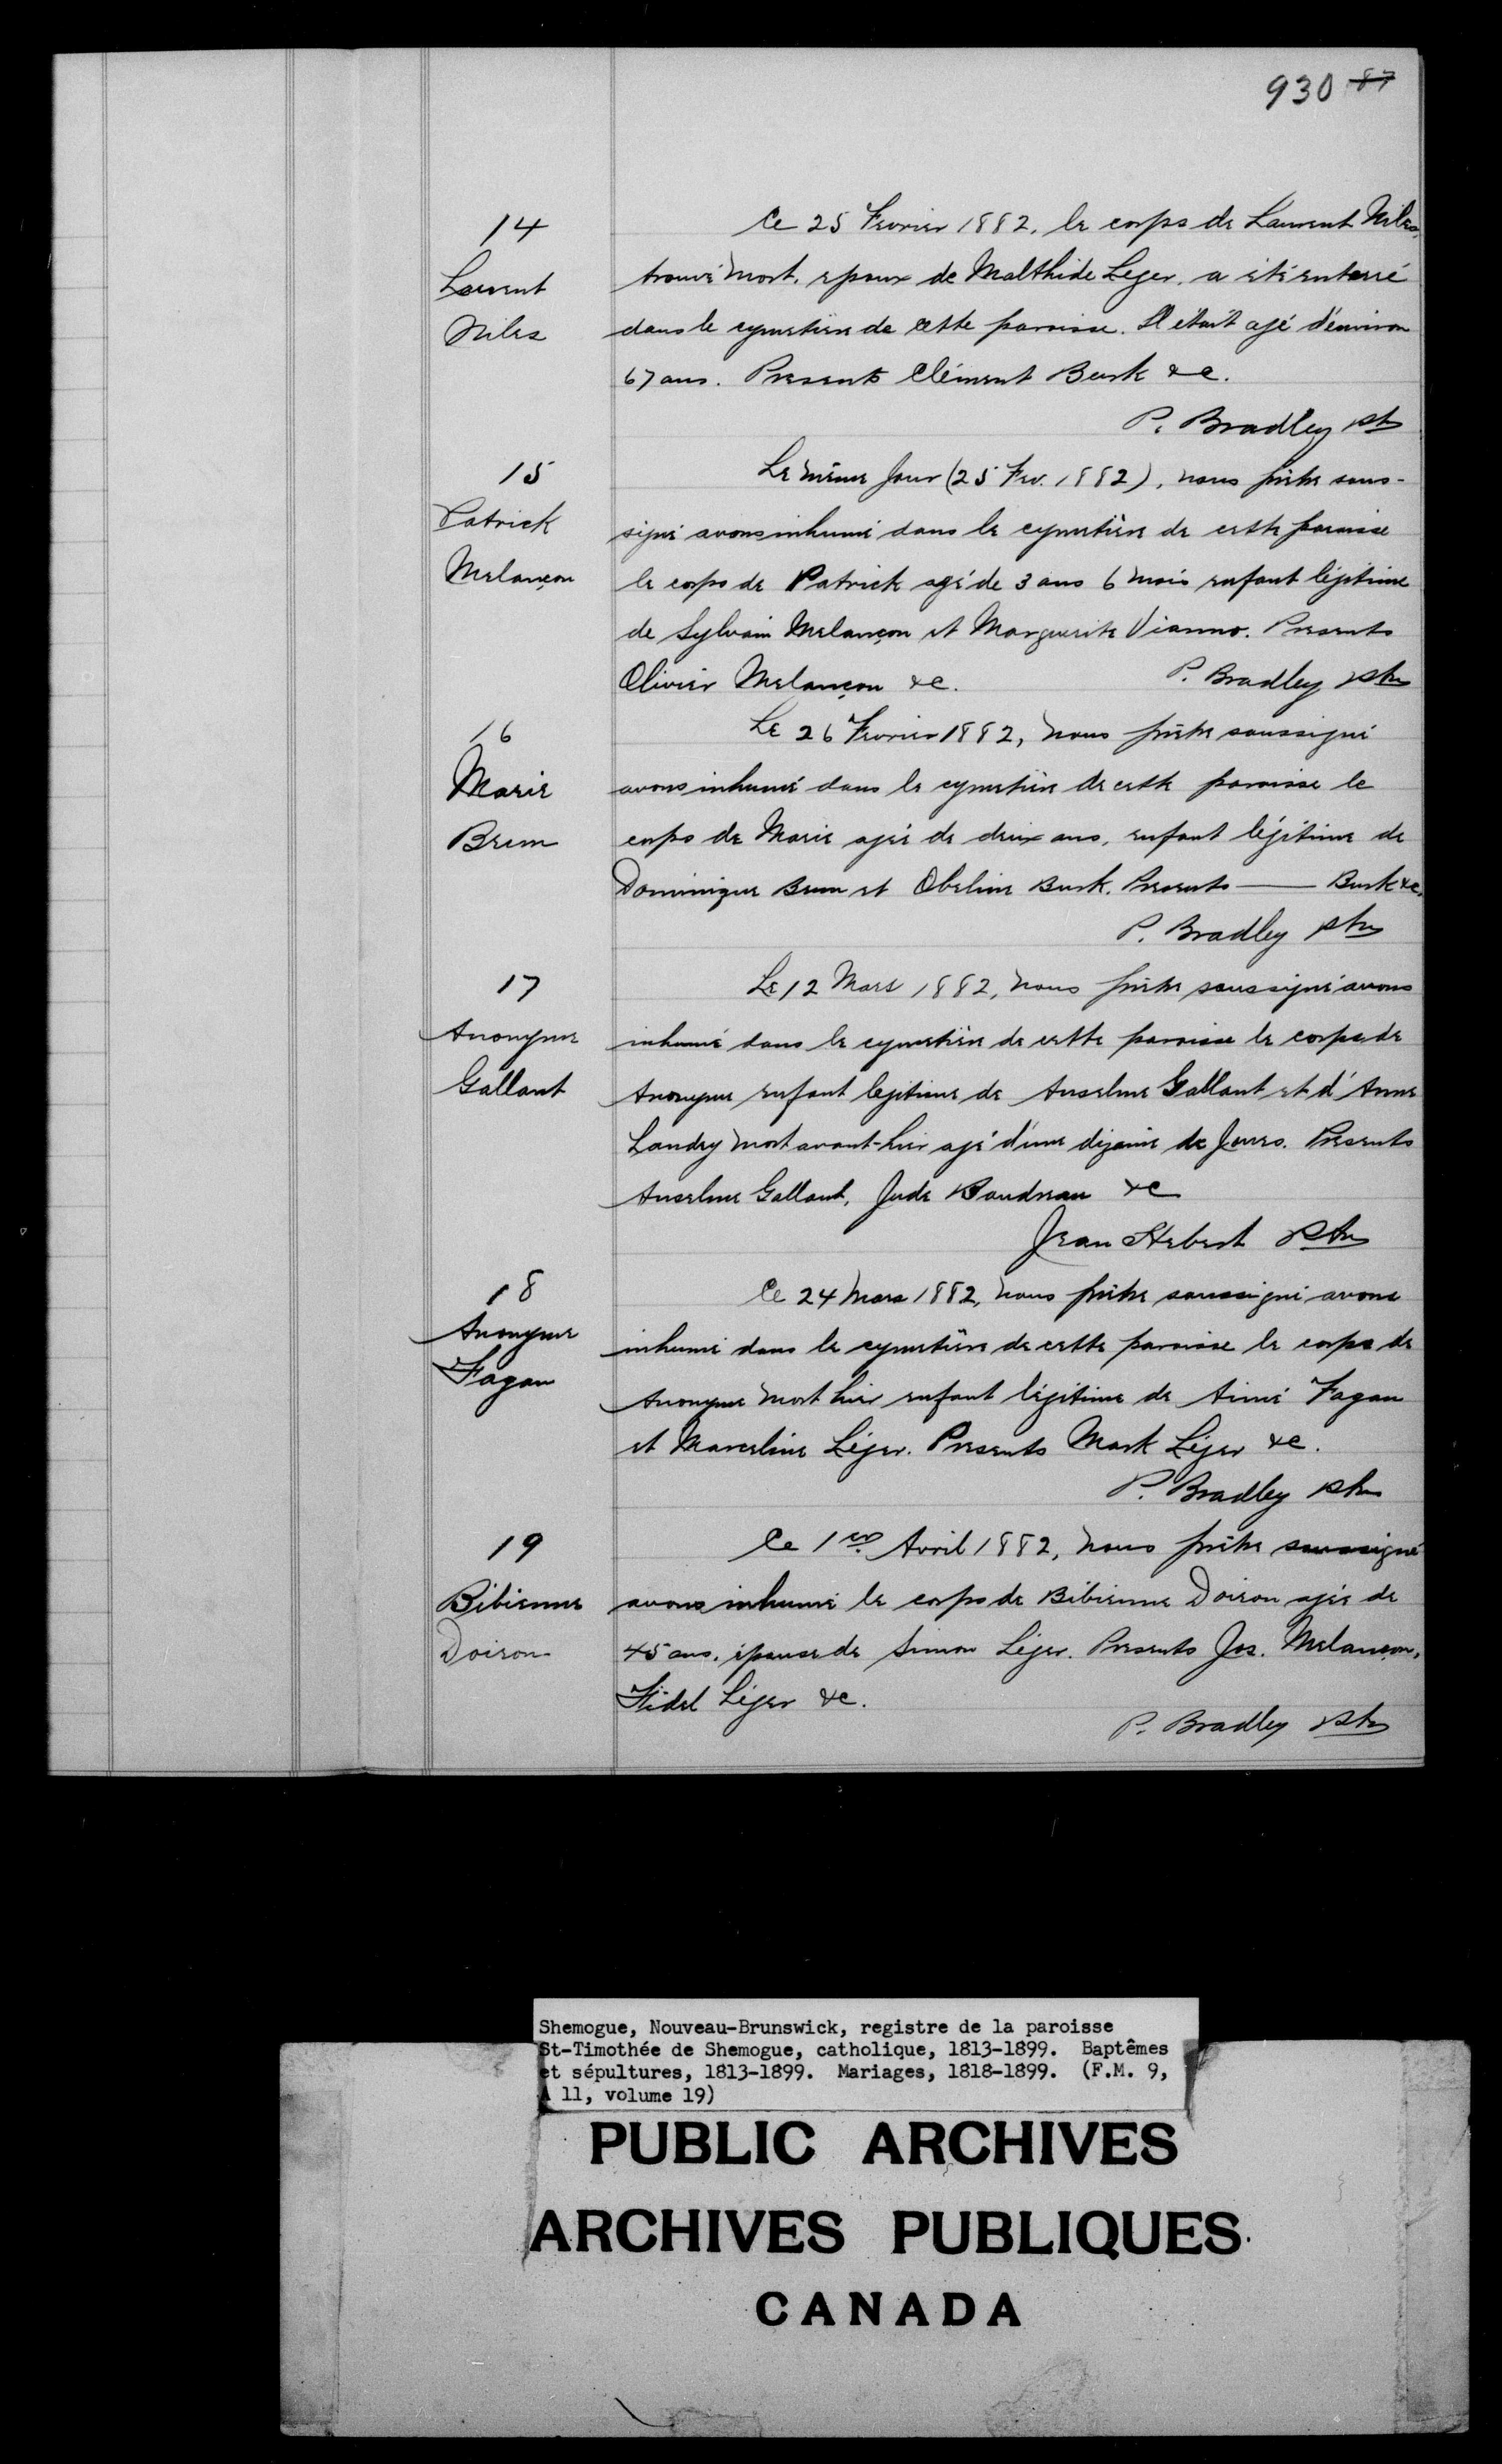 930 87
14
Laurent
Niles
Ce 25 Fevrier 1882, le corps de Laurent Niles,
trouvé mort, epoux de Malthide Leger, a été enterré
dans le cymetière de cette paroisse. Il était agé d'environ
67 ans. Presents Clément Burk &c.
P. Bradley ptr
15
Patrick
Melançon
Le même Jour (25 Fev. 1882), nous prêtre sous-
signé avons inhumé dans le cymetière de cette paroisse
le corps de Patrick agé de 3 ans 6 mois enfant légitime
de Sylvain Melançon et Marguerite Vianno. Presents
Olivier Melançon &c.
P. Bradley ptr
16
Marie
Brun
Le 26 Fevrier 1882, nous prêtre soussigné
avons inhumé dans le cymetière de cette paroisse le
corps de Marie agée de deux ans, enfant légitime de
Dominique Brun et Obeline Burk. Presents —— Burk &c.
P. Bradley ptr
17
Anonyme
Gallant
Le 12 Mars 1882, nous prêtre soussigné avons
inhumé dans le cymetière de cette paroisse le corps de
Anonyme enfant legitime de Anselme Gallant et d'Anne
Landry mort avant-hier agé d'une dizaine de Jours. Presents
Anselme Gallant, Jude Boudreau &c
Jean Hebert ptr
18
Anonyme
Fagan
Ce 24 Mars 1882, nous prêtre soussigné avons
inhumé dans le cymetière de cette paroisse le corps de
Anonyme mort hier enfant légitime de Aimé Fagan
et Marceline Léger. Presents Mark Léger &c.
P. Bradley ptr
19
Bibienne
Doiron
Ce 1er Avril 1882, nous prêtre soussigné
avons inhumé le corps de Bibienne Doiron agée de
45 ans, épouse de Simon Léger. Presents Jos. Melançon,
Fidel Léger &c.
P. Bradley ptr
Shemogue, Nouveau-Brunswick, registre de la paroisse
St-Timothée de Shemogue, catholique, 1813-1899. Baptêmes
et sépultures, 1813-1899. Mariages, 1818-1899. (F.M. 9,
A 11, volume 19)
PUBLIC ARCHIVES
ARCHIVES PUBLIQUES
CANADA